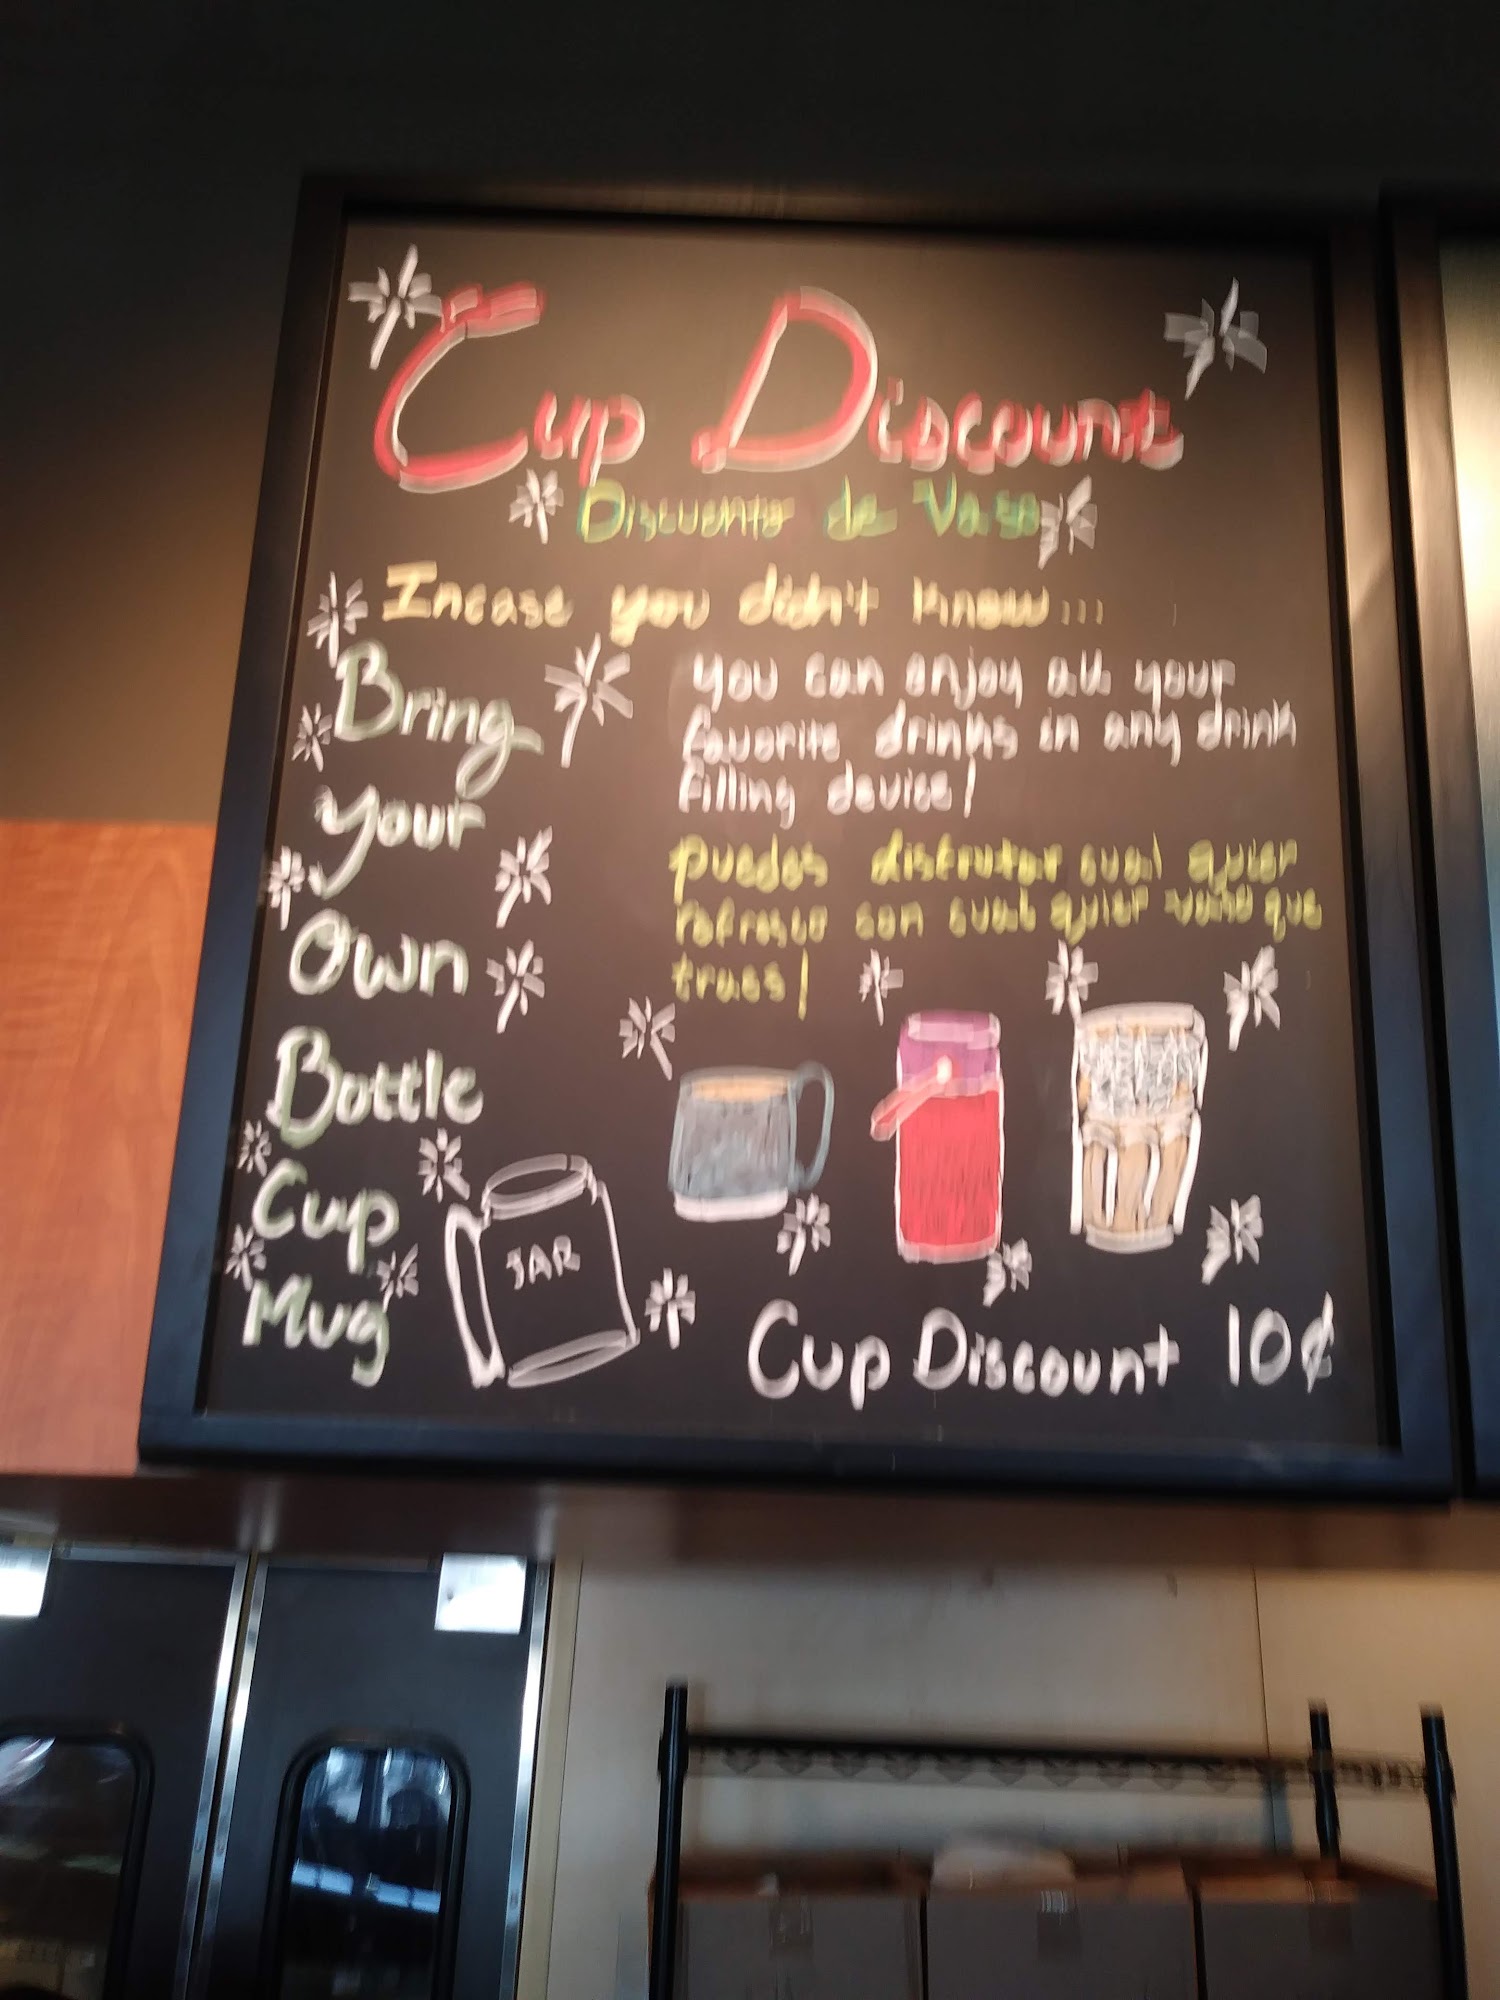 Cup Discount
Discuento de Vaso
Incase you didn't know...
Bring
Your
Own
Bottle
Cup
Mug
You can enjoy all your
favorite drinks in any drink
filling device!
puedes disfrutar cual quier
refresco con cual quier vaso que
traes!
JAR
Cup Discount 10¢